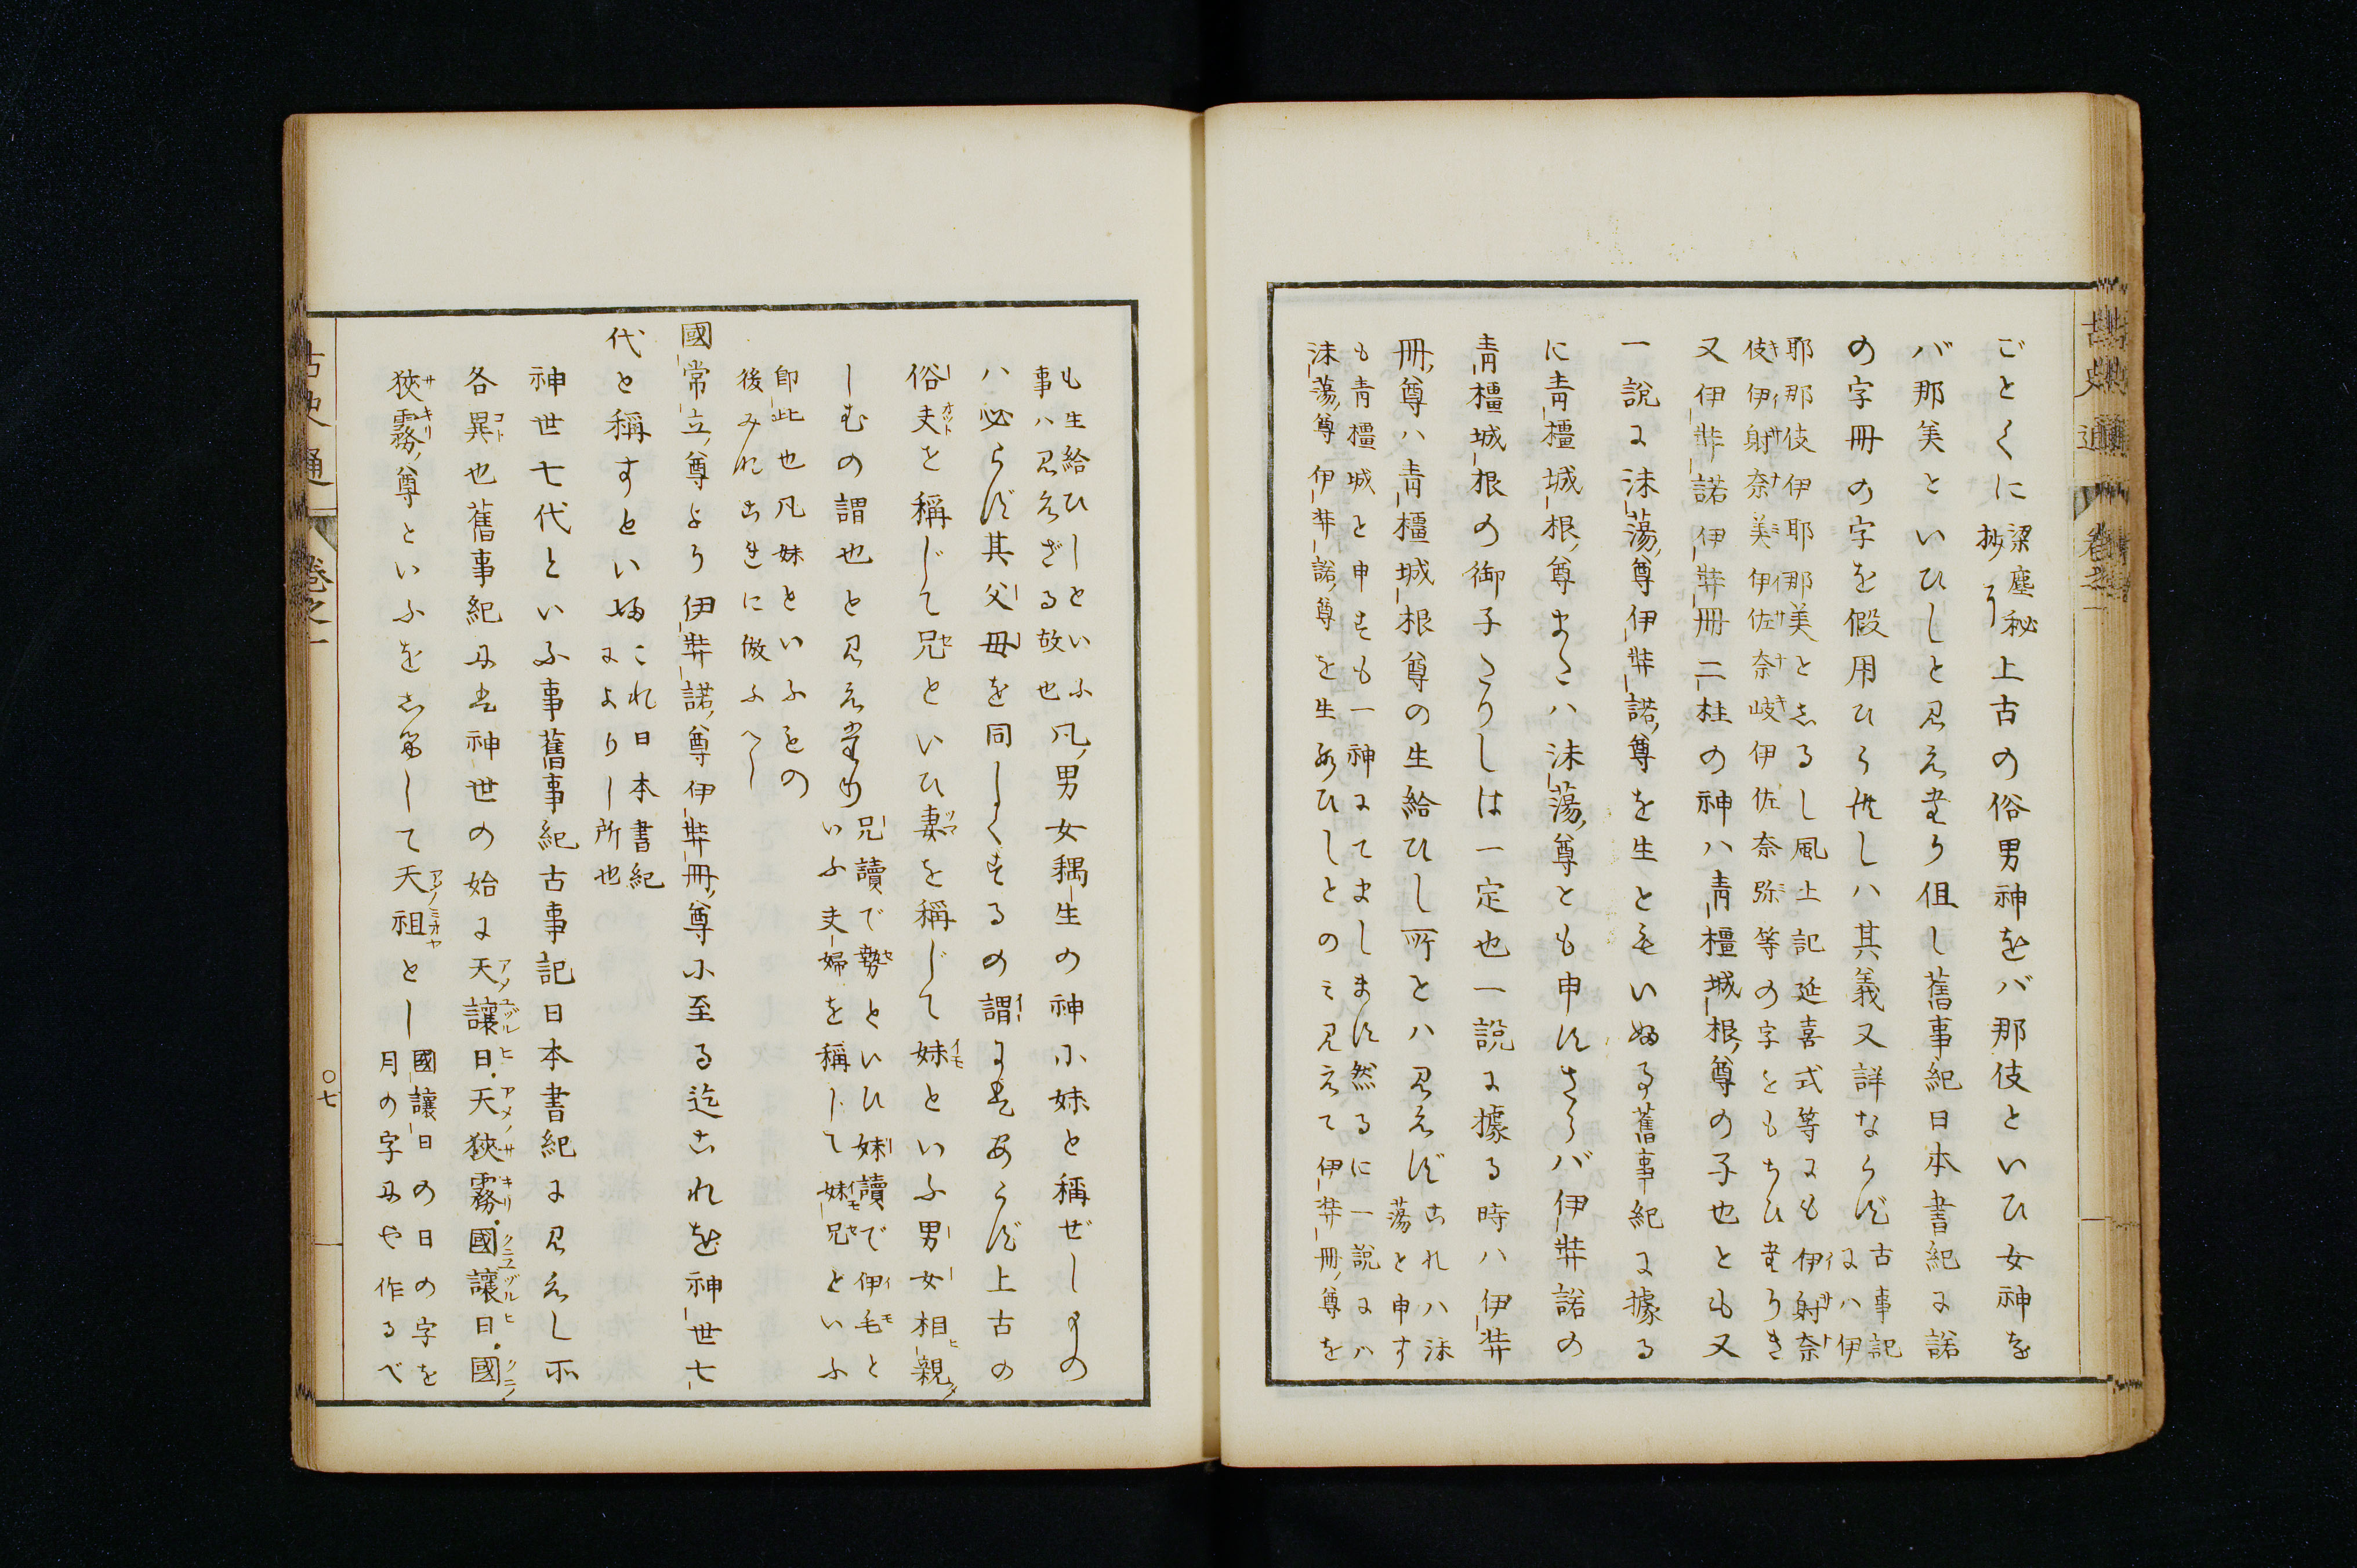 ごとくに梁塵秘
抄ニ上古の俗男神をバ那伎といひ女神を
バ那美といひしと見えたり但し舊事紀日本書紀に諾
の字冊の字を假用ひられしハ其義又詳ならず古事記
にハ伊
耶那伎伊耶那美としるし風土記延喜式等にも伊射奈
伎伊射奈美伊佐奈岐伊佐奈弥等の字をもちひたりき
又伊弉諾伊弉冊二柱の神ハ青橿城根尊の子也とも又
一說に沫蕩尊伊弉諾尊を生ともいふ舊事紀に據る
に青橿城根尊またハ沫蕩尊とも申すさらバ伊弉諾の
青橿城根の御子たりしは一定也一說に據る時ハ伊弉
冊尊ハ青橿城根尊の生給ひし所とハ見えずこれハ沫
蕩と申す
も青橿城と申すも一神にてまします然るに一說にハ
沫蕩尊伊弉諾尊を生給ひしとのミ見えて伊弉冊尊を
も生給ひしといふ
事ハ見えざる故也凡男女耦生の神に妹と稱ぜしものハ
必らず其父母を同しくするの謂にはあらず上古の
俗夫を稱じて兄といひ妻を稱じて妹といふ男女相親
しむの謂也と見えたり兄讀で勢といひ妹讀で伊毛と
いふ夫婦を稱して妹兄といふ
即此也凡妹といふもの
後みなこれに倣ふべし
國常立尊より伊弉諾尊伊弉冊尊に至る迄これを神世七
代と稱すといふこれ日本書紀
によりし所也
神世七代といふ事舊事紀古事記日本書紀に見えし所
各異也舊事紀には神世の始に天讓日天狹霧國讓日國
狹霧尊といふをしるして天祖とし國讓日の日の字を
月の字にや作るべ
古史通
卷之一
〇七